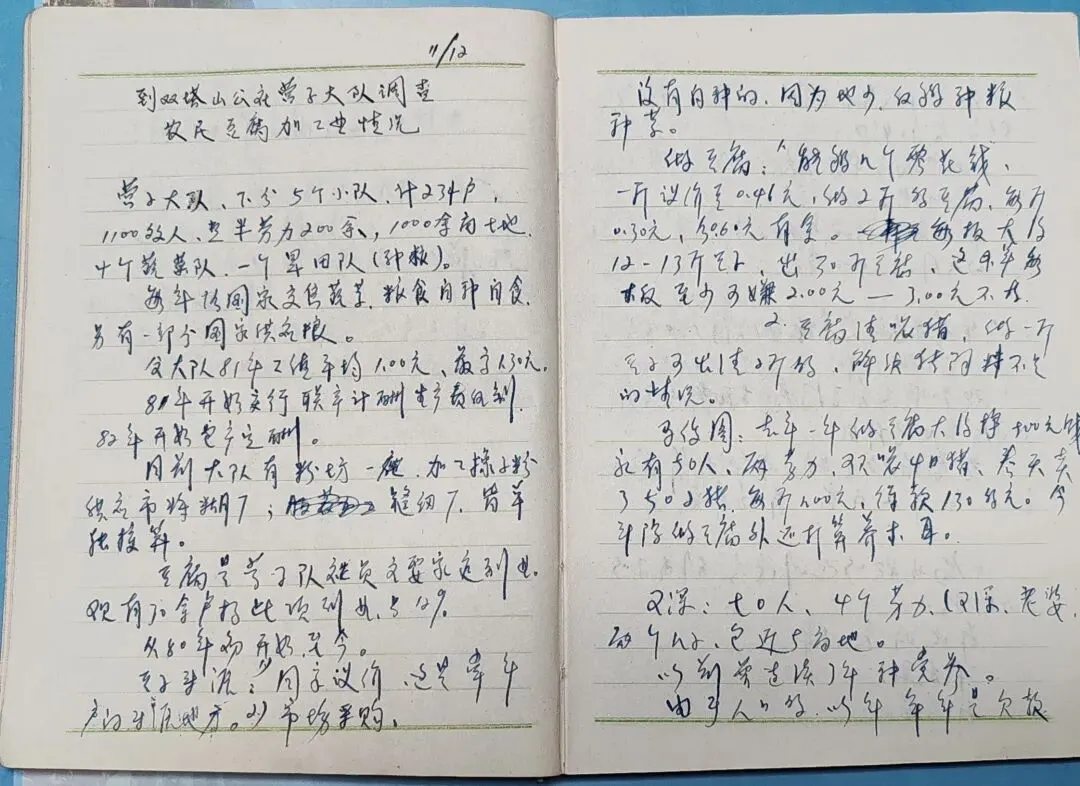 11/12
到双塔山公社营子大队调查
农民豆腐加工业情况
营子大队、下分5个小队、计234户,
1100多人,整半劳力200余,1000余亩土地.
4个蔬菜队、一个旱田队(种粮)。
每年给国家交售蔬菜,粮食自种自食,
另有一部分国家供应粮。
全大队81年工值平均1.00元、最高1.30元。
81年开始实行联产计酬生产责任制.
82年开始包产定酬。
目前大队有粉坊一 加工 子粉
供应市 糊厂; 缝纫厂、皆单
独核算。
豆腐是营子队社员主要家庭副业。
现有30余户搞此项副业,占12%
从80年初开始至今。
豆子来源:1)国家议价、这是
户的来源地方。2)市场采购.
没有自种的.因为地少,仅够种粮
种菜。
做豆腐:1、能够几个零花钱、
一斤议价豆0.46元,做2斤多豆腐、每斤
0.30元,合0.60元有余。每板大约
12-13斤豆子、出30斤豆腐、这样每
板至少可赚2.00元—3.00元不成.
2.豆腐渣喂猪,做一斤
豆子可出渣2斤多,解决猪饲料不足
的情况。
:去年一年做豆腐大约挣500元钱
家有50人、两劳力,又喂4口猪、春天卖
了50斤猪,每斤1.00元,得款130多元。今
年除做豆腐外还打算养木耳。
:七口人、4个劳力,( 、老婆、
两个儿子、包近5亩地。
以前曾连续 年种党参。
由于人口多,以年 年年是欠款